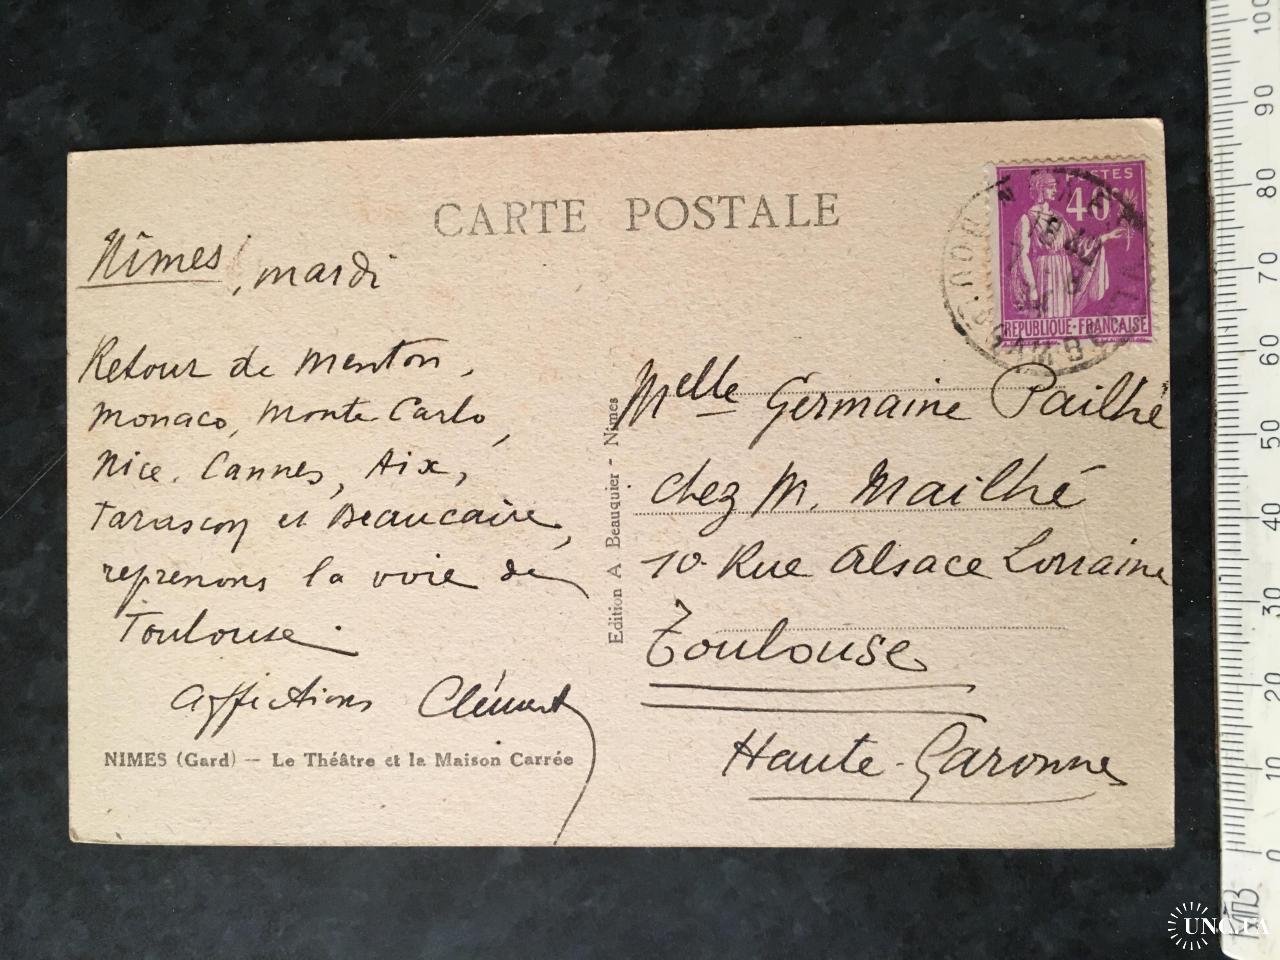 CARTE POSTALE
POSTES
40c
REPUBLIQUE-FRANÇAISE
Nîmes, mardi
Retour de Menton,
Monaco, Monte Carlo,
Nice, Cannes, Aix,
Tarascon et Beaucaire,
reprenons la voie de
Toulouse.
affections Clément
NIMES (Gard) — Le Théâtre et la Maison Carrée
Edition A Beauquier - Nîmes
Melle Germaine Pailhé
chez M. Mailhé
10. Rue Alsace Lorraine
Toulouse
Haute-Garonne
100
90
80
70
60
50
40
30
20
10
0
UNC.UA